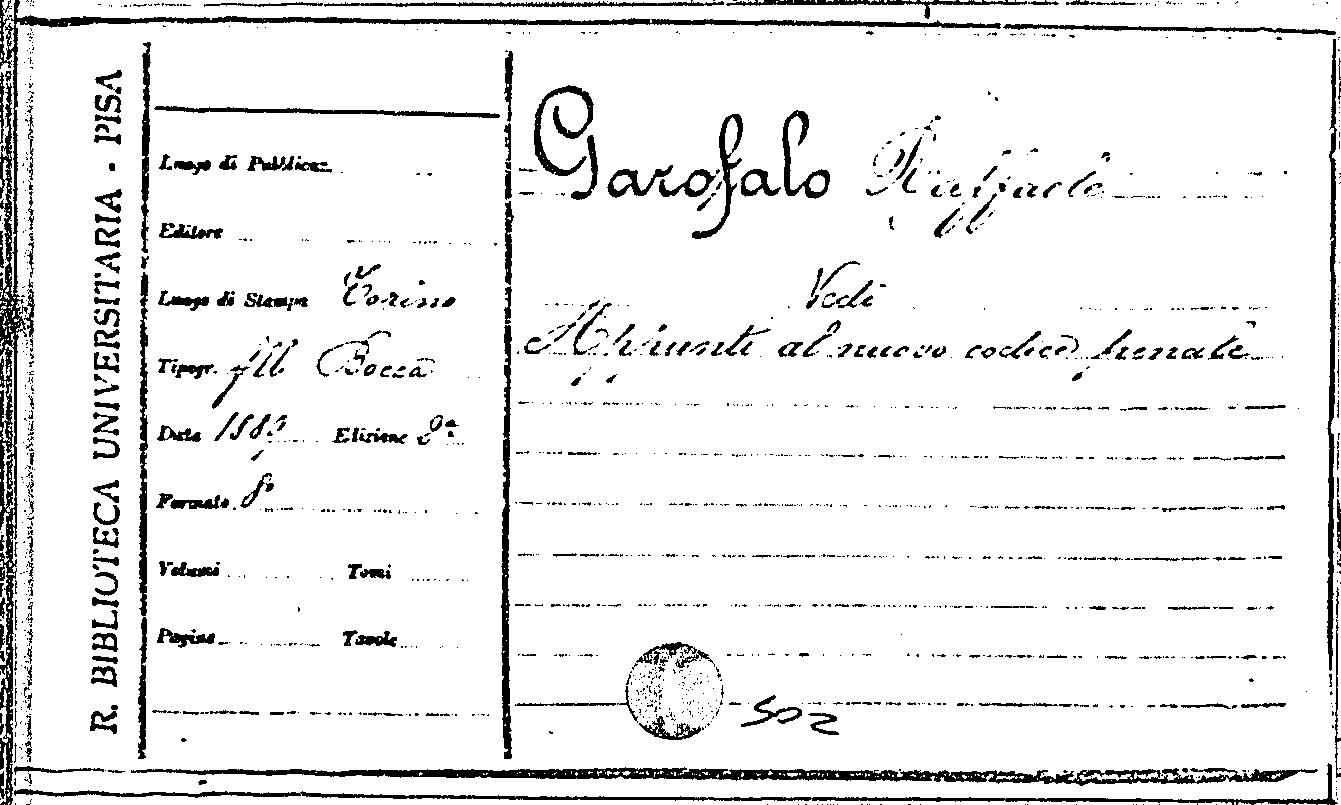 R. BIBLIOTECA UNIVERSITARIA - PISA
Luogo di Pubblicaz.
Editore
Luogo di Stampa Torino
Tipogr. flli Bocca
Data 1889 Edizione 2a
Formato 8o
Volumi Tomi
Pagine Tavole
Garofalo Raffaele
Vedi
Appunti al nuovo codice penale